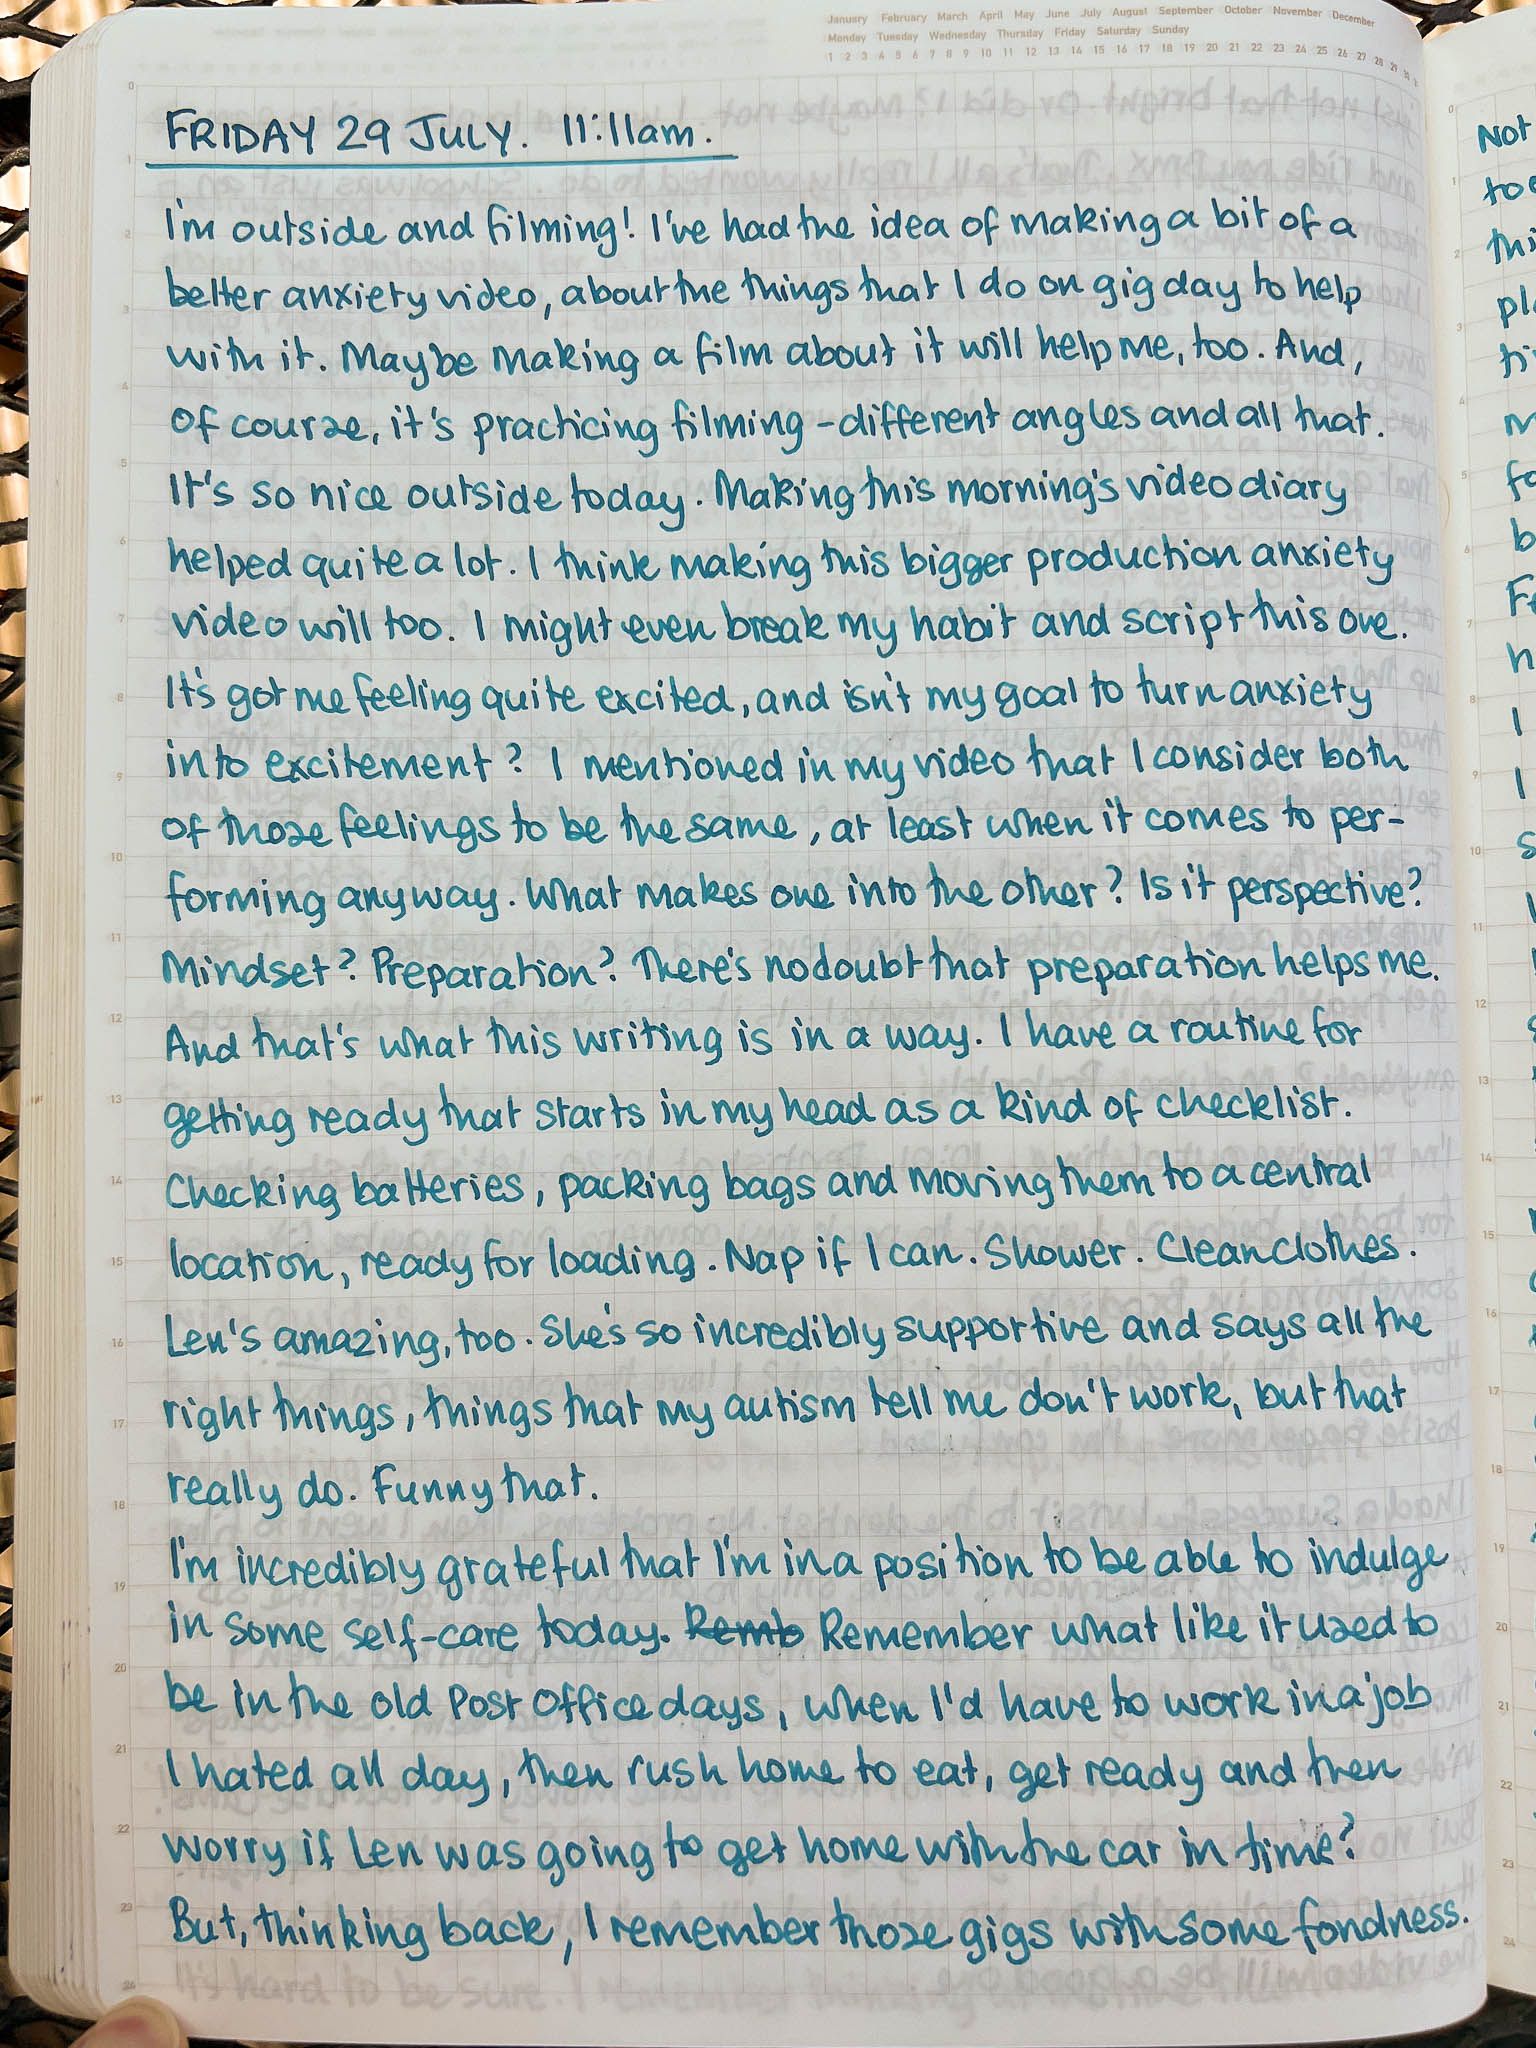 January February March April May June July August September October November December
Monday Tuesday Wednesday Thursday Friday Saturday Sunday
1 2 3 4 5 6 7 8 9 10 11 12 13 14 15 16 17 18 19 20 21 22 23 24 25 26 27 28 29 30 31
FRIDAY 29 JULY. 11:11am.
I'm outside and filming! I've had the idea of making a bit of a
better anxiety video, about the things that I do on gig day to help
with it. Maybe making a film about it will help me, too. And,
of course, it's practicing filming - different angles and all that.
It's so nice outside today. Making this morning's video diary
helped quite a lot. I think making this bigger production anxiety
video will too. I might even break my habit and script this one.
It's got me feeling quite excited, and isn't my goal to turn anxiety
into excitement? I mentioned in my video that I consider both
of those feelings to be the same, at least when it comes to per-
forming anyway. What makes one into the other? Is it perspective?
Mindset? Preparation? There's no doubt that preparation helps me.
And that's what this writing is in a way. I have a routine for
getting ready that starts in my head as a kind of checklist.
Checking batteries, packing bags and moving them to a central
location, ready for loading. Nap if I can. Shower. Clean clothes.
Len's amazing, too. She's so incredibly supportive and says all the
right things, things that my autism tell me don't work, but that
really do. Funny that.
I'm incredibly grateful that I'm in a position to be able to indulge
in some self-care today. Remb Remember what like it used to
be in the old Post Office days, when I'd have to work in a job
I hated all day, then rush home to eat, get ready and then
worry if Len was going to get home with the car in time?
But, thinking back, I remember those gigs with some fondness.